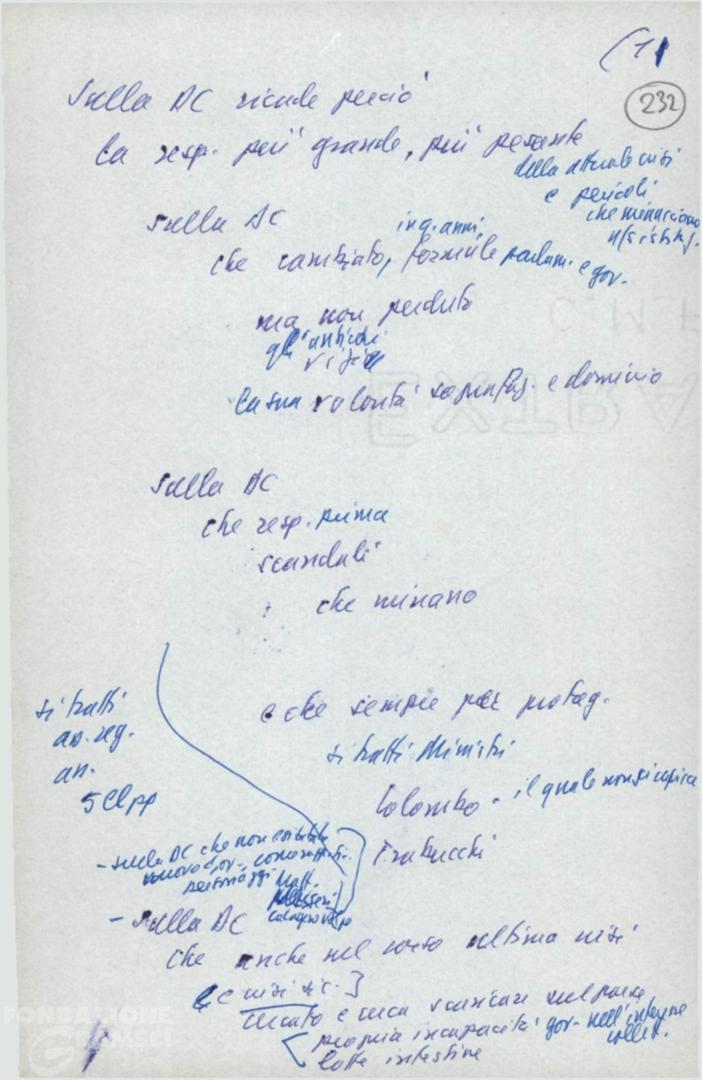 (1)
232
Sulla DC ricade perciò
la resp. più grande, più pesante
della attuale crisi
e pericoli
che minacciano
Sulla DC
in q. anni
che cambiato, formule parlam. e gov.
ma non perduto
gli antichi
vizi
la sua volontà sopraffaz. e dominio
Sulla DC
che resp. prima
scandali
che minano
e che sempre per protag.
si tratti Ministri
Colombo - il quale non si capisce
Trabucchi
si tratti
as. reg.
an.
- sulla DC che non
nuovo gov.
personaggi Matt.
- Sulla DC
che anche nel corso ultima crisi
cercato e cerca scaricare sul paese
propria incapacità gov. nell'interesse
collett.
lotte intestine
FONDAZIONE
GRAMSCI